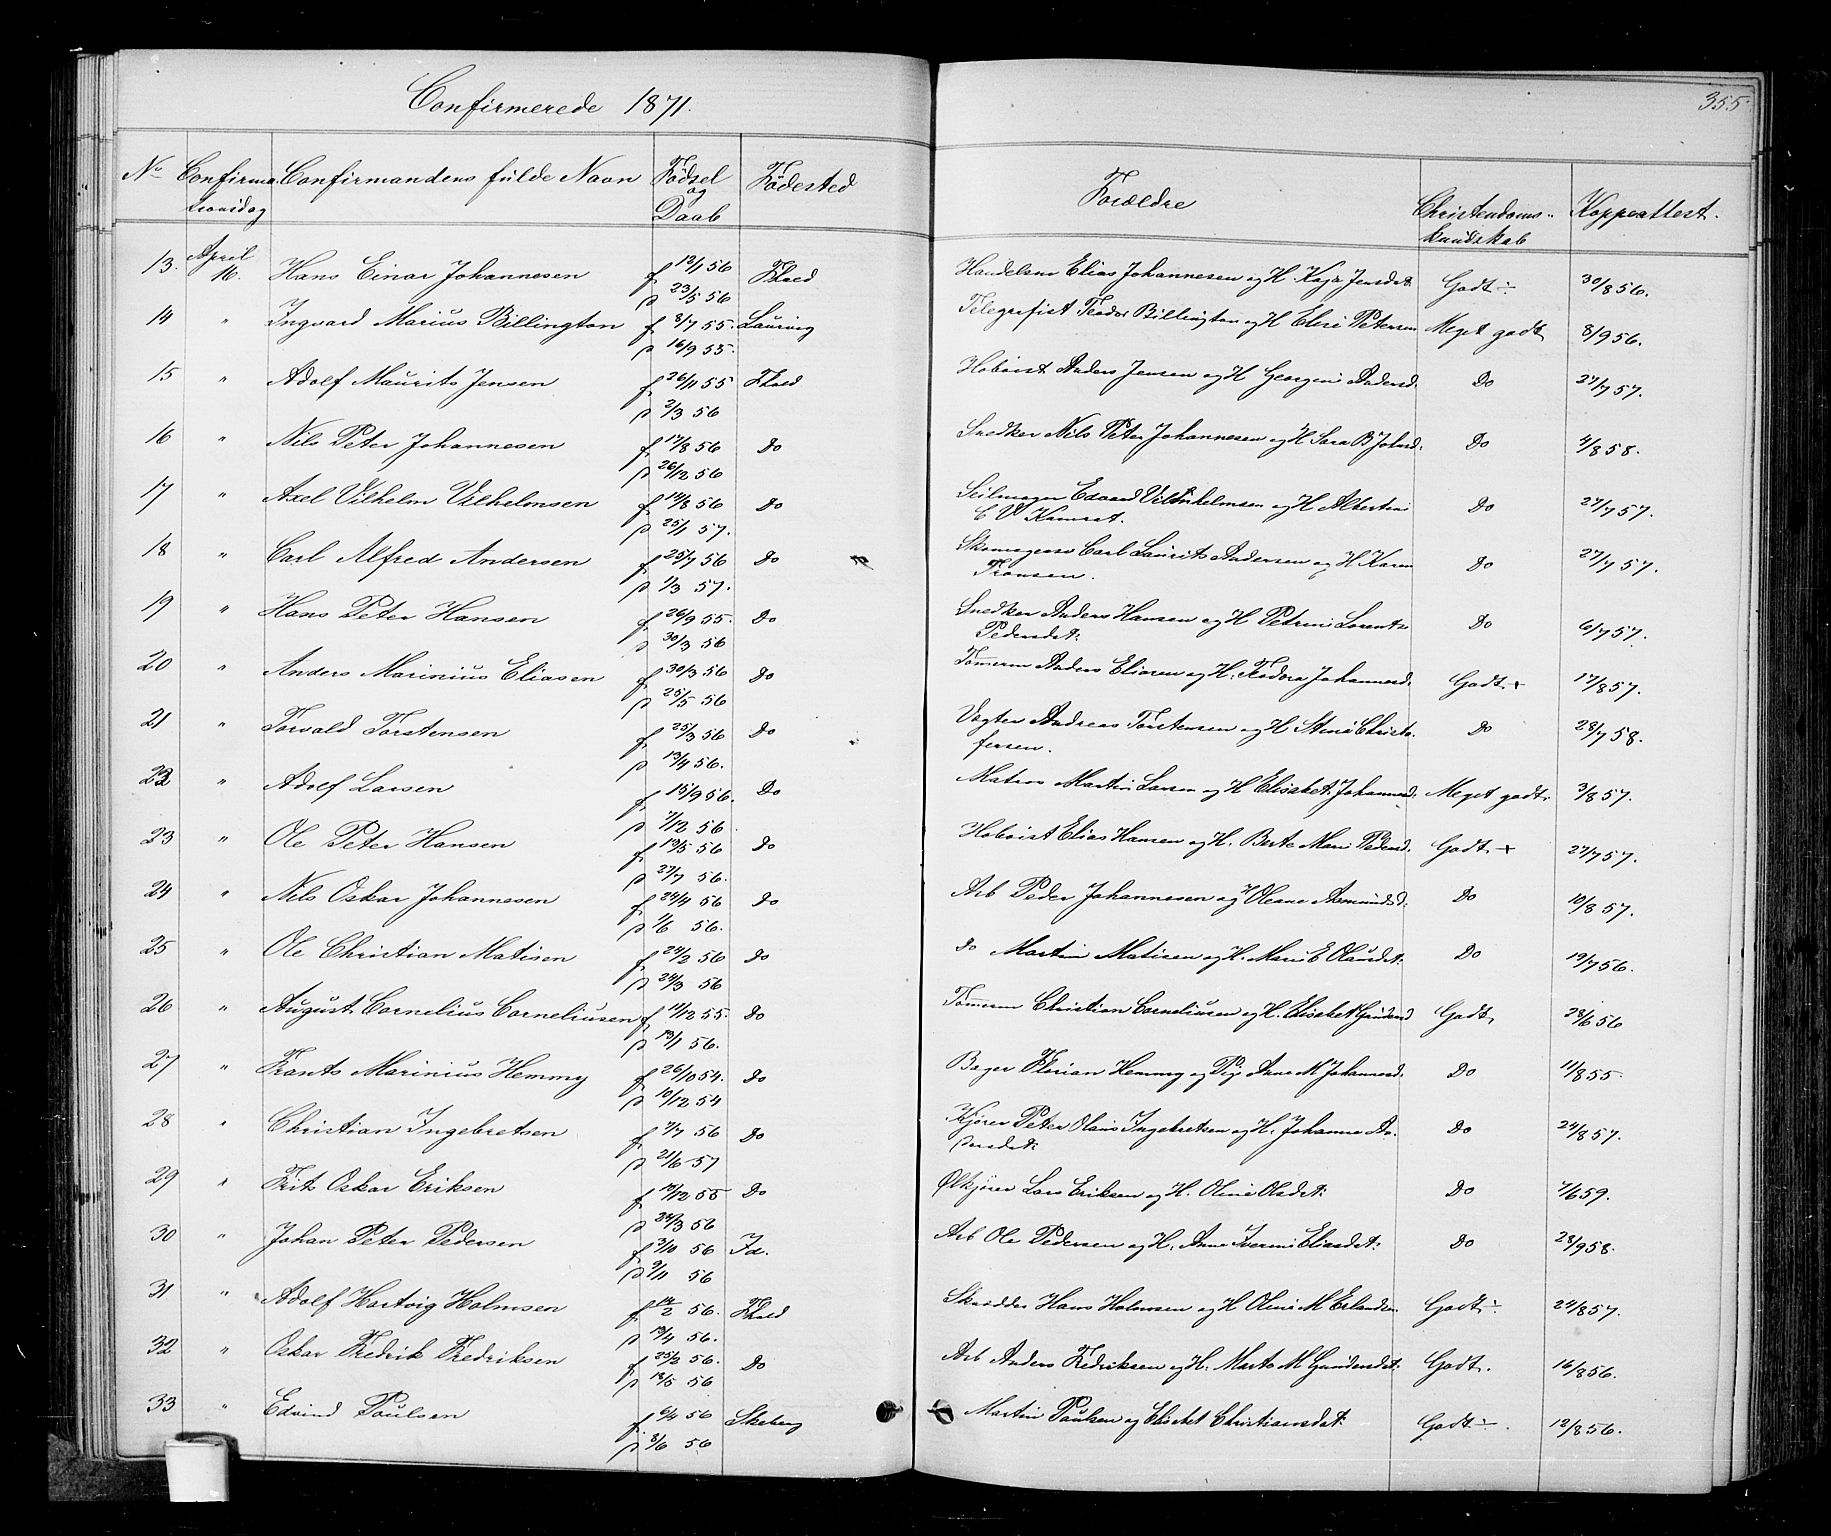 Confirmerede 1871.
355
No Confirma- Confirmandens fulde Navn Födsel Födested Forældre Christendoms- Koppeattest.
tionsdag og Daab kundskab
13. April 16. Hans Einar Johannesen f 12/1 56 Fhald Handelsm Elias Johannesen og H. Kaja Jensdat: Godt ÷ 30/8 56.
p 23/5 56
14 " Ingvard Marius Billington f 8/7 55. Laurvig Telegrafist Teodor Billington og H Elise Petersen Meget godt 8/9 56.
p 16/9 55.
15 " Adolf Maurits Jensen f 26/11 55 Fhald Hoboist Anders Jensen og H Georgine Andersd. Do 27/7 57.
p 2/3 56
16 " Nils Peter Johannesen f 17/8 56 Do Snedker Nils Peter Johannesen og H Sara B Johnsd. Do 4/8 58.
p 26/12 56
17 " Axel Vilhelm Vilhelmsen f 14/8 56 Do Seilmager Edvard Vilhelmsen og H Albertine Do 27/7 57.
p 25/1 57. C V
18 " Carl Alfred Andersen f 25/7 56 Do Skomagersv Carl Laurits Andersen og H Karen Do 27/7 57.
p 1/3 57. Fransen.
19 " Hans Peter Hansen f 26/9 55. Do Snedker Anders Hansen og H Petrine Lorentse Do 6/7 57.
p 30/3 56 Pedersdat:
20 " Anders Marinius Eliasen f 30/3 56 Do Tømerm Anders Eliasen og H. Teodora Johannesd. Godt + 17/8 57.
p 25/5 56
21 " Torvald Torstensen f 25/3 56 Do Vægter Andreas Torstensen og H Stine Christo- Do 28/7 58.
p 13/4 56. fersen.
22 " Adolf Larsen f 15/9 56. Do Matros Martin Larsen og H Elisabet Johannesd. Meget godt 3/8 57.
p 7/12 56
23 " Ole Peter Hansen f 13/5 56 Do Hoboist Elias Hansen og H. Berte Marie Pedersd. Godt + 27/7 57.
p 27/7 56.
24 " Nils Oskar Johannesen f 24/4 56 Do Arb Peder Johannesen og H Oleane Asmundsd: Do 10/8 57.
p 1/6 56.
25 " Ole Christian Matisen f 24/2 56 Do Do Martin Matisen og H. Marie E Olausdat: Do 19/7 56.
p 24/3 56
26 " August Cornelius Corneliusen f 14/12 55. Do Tømerm Christian Corneliusen og H. Elisabet Gundersd Godt 28/6 56
p 13/1 56.
27 " Frants Marinius Hemmy f 26/10 54. Do Bager Florian Hemmy og Pig. Anne M Johannesd. Do 11/8 55.
p 10/12 54
28 " Christian Ingebretsen f 7/7 56 Do Kjører Peter Olaus Ingebretsen og H. Johanne An- Do 24/8 57.
p 21/6 57 dersdat:
29 " Frits Oskar Eriksen f 17/12 55 Do Ølkjører Lars Eriksen og H. Oline Olsdat: Do 7/6 59.
p 24/3 56
30 " Johan Peter Pedersen f 3/10 56 Id. Arb Ole Pedersen og H. Anne Iverine Eliasdat: Do 28/9 58.
p 9/11 56
31 " Adolf Hartvig Holmsen f 14/2 56. Fhald Skrædder Hans Holmsen og H Oline M Erlandsen Godt ÷ 24/8 57.
p 13/4 56.
32 " Oskar Fredrik Fredriksen f 25/2 56. Do Arb Anders Fredriksen og H. Marte M Gundersdat: Godt. 16/8 56.
p 18/5 56
33 " Edvind Poulsen f 6/4 56 Skeberg Martin Poulsen og Elisabet Christiansdat: Godt ÷. 12/8 56.
p 8/6 56